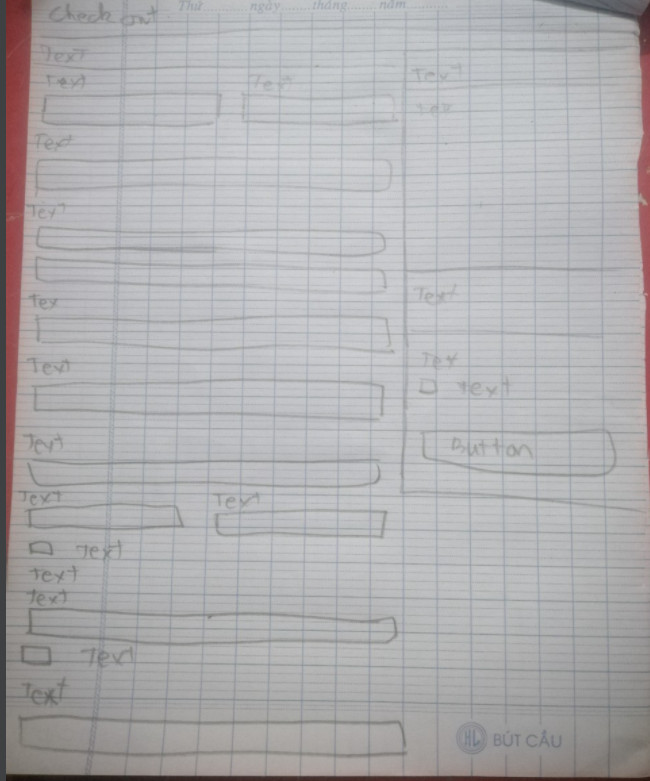 Check out
Thứ ngày tháng năm
Text
Text Text
Text
Text
Tex
Text
Text
Text Text
Text
Text
Text
Text
Text
Text
Tex
Text
Tex
Text
Button
HL BÚT CÂU